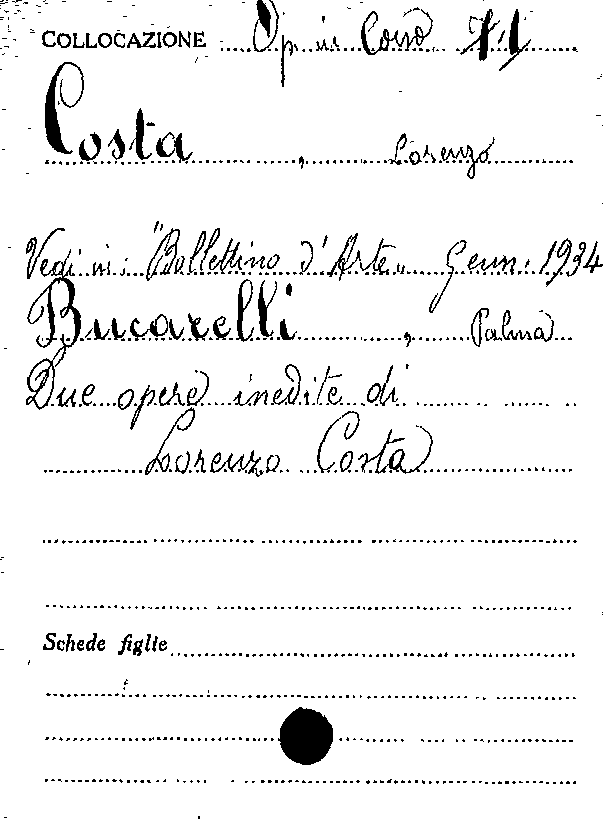 COLLOCAZIONE Op. in Corso
Costa, Lorenzo
Vedi in: "Bollettino d'Arte" Genn. 1934
Bucarelli, Palma
Due opere inedite di
Lorenzo Costa
Schede figlie